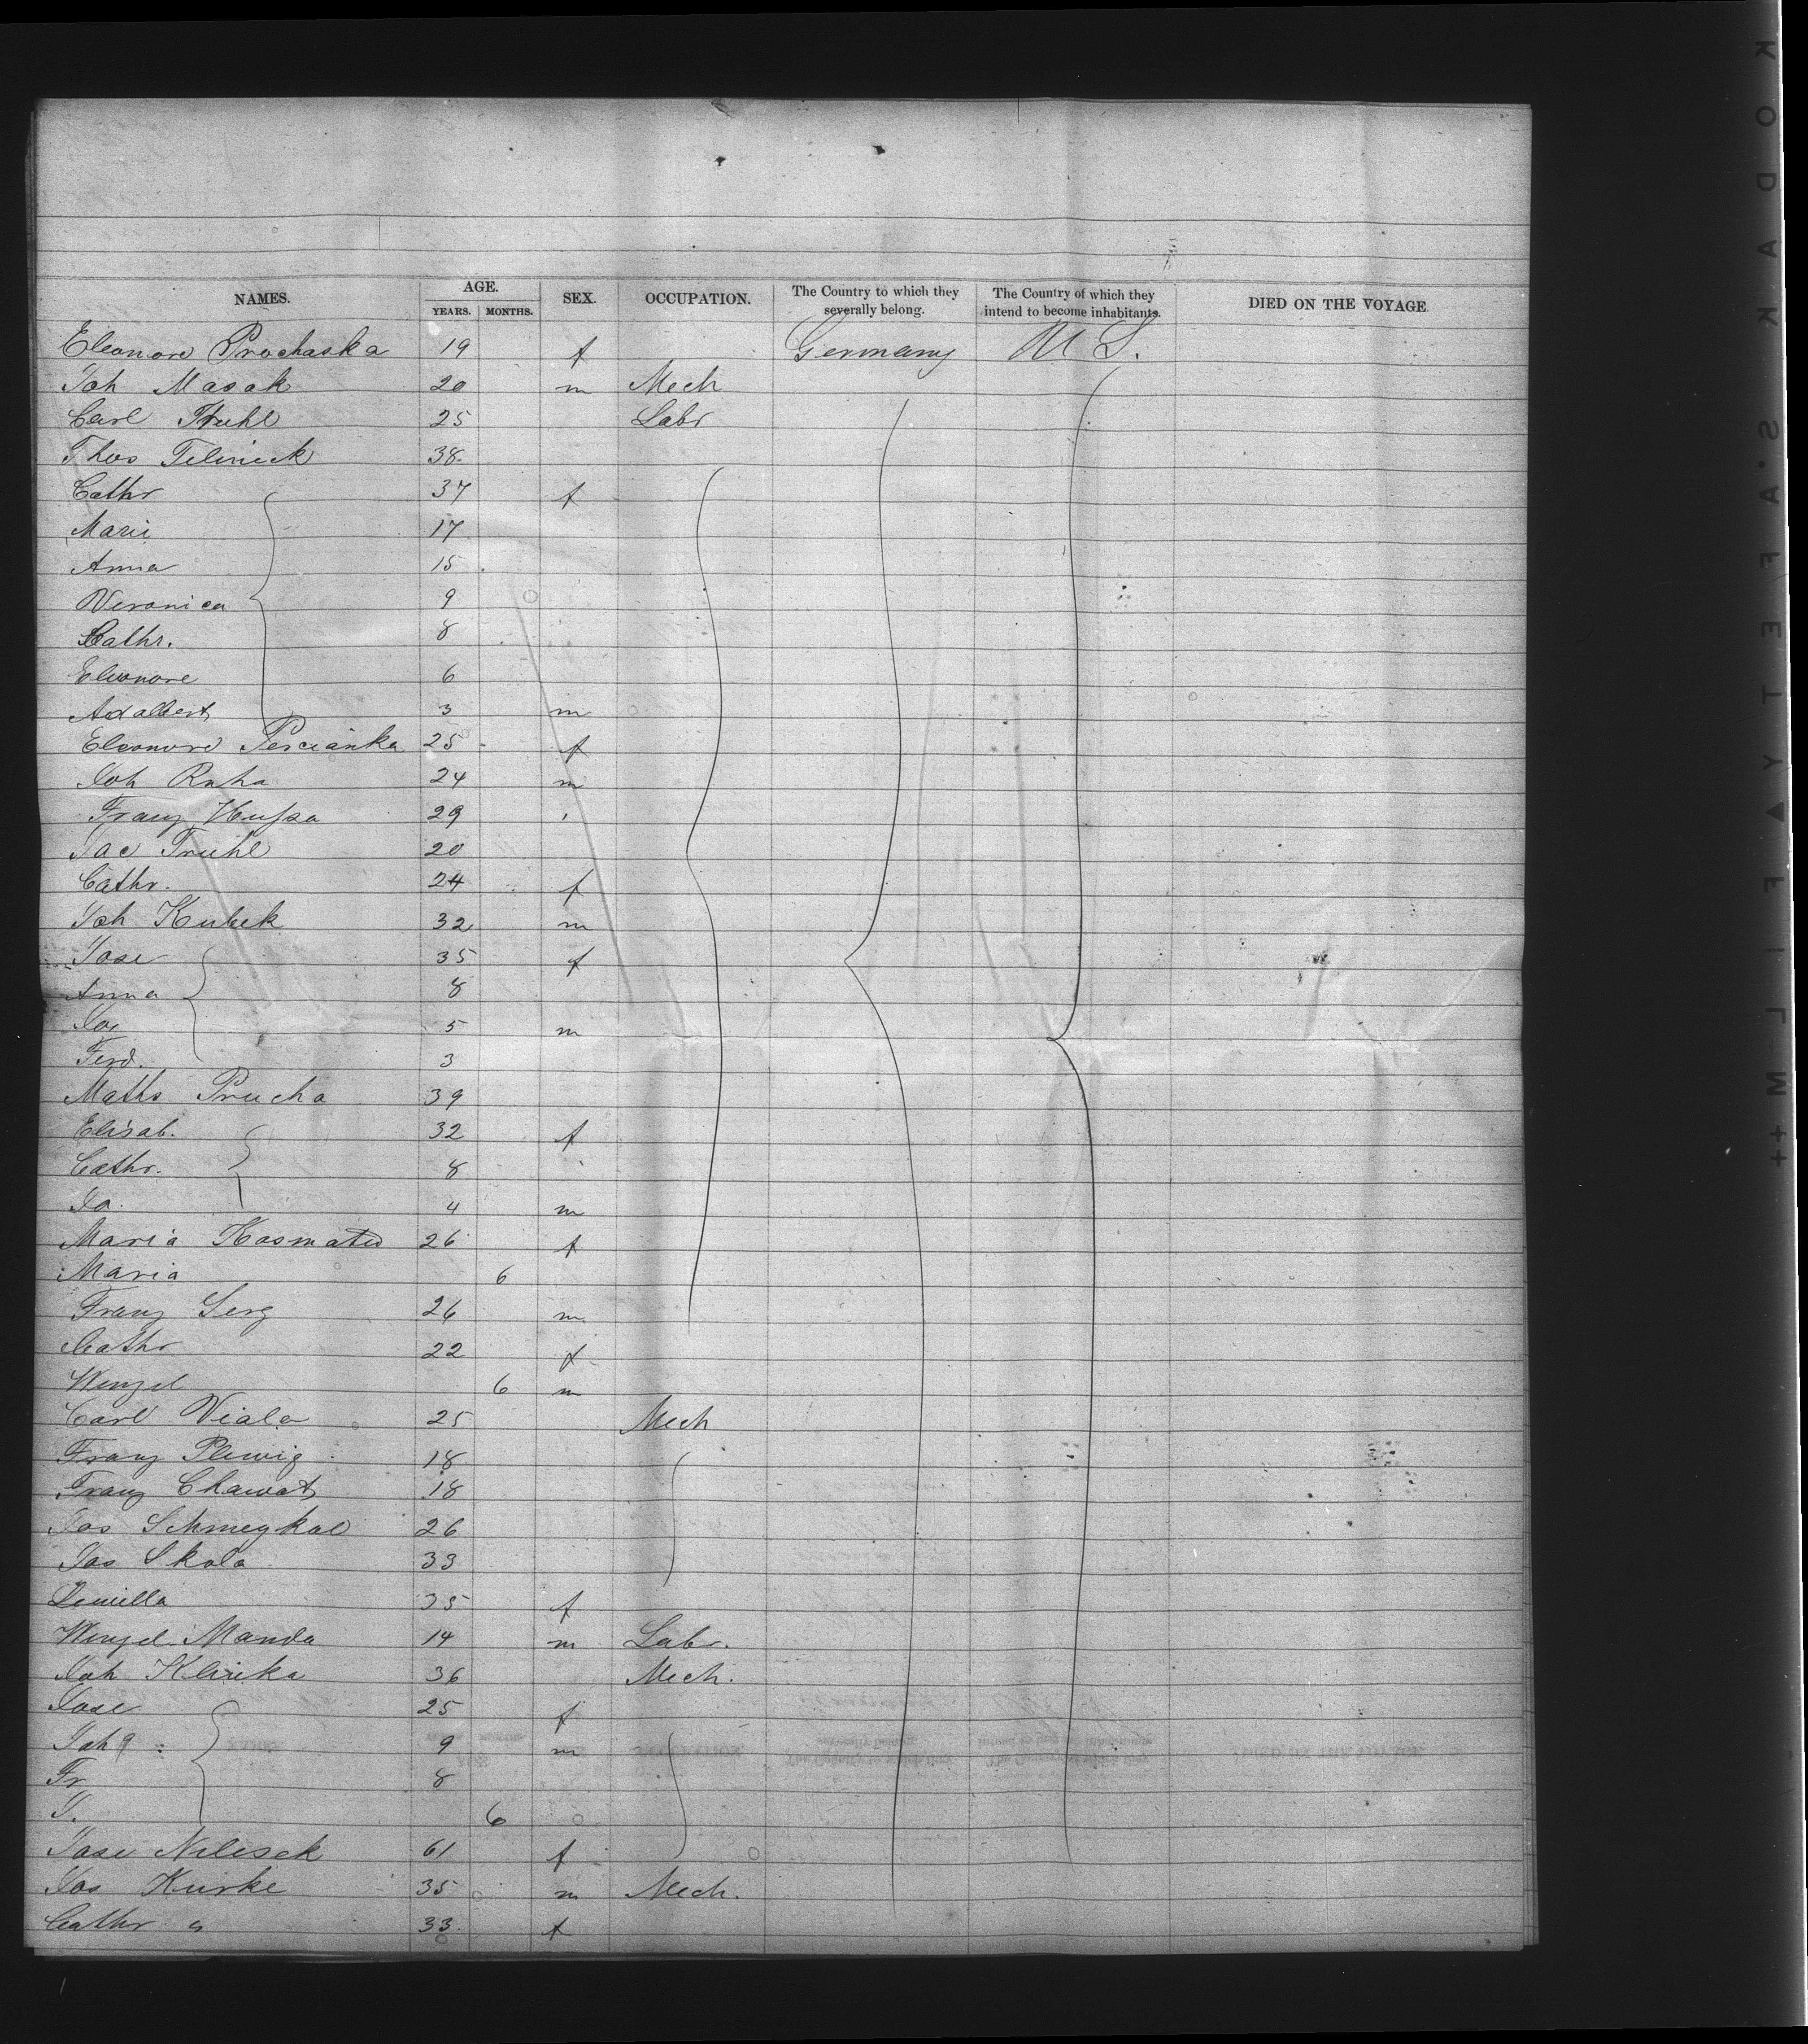 NAMES. AGE. YEARS. MONTHS. SEX. OCCUPATION. The Country to which they severally belong. The Country of which they intend to become inhabitants. DIED ON THE VOYAGE
Eleonore Prochaska 19 f Germany U S.
Joh Masak 20 m Mech
Carl Truhl 25 Labr
Thos Telinick 38
Cathr 37 f
Marie 17
Anna 15
Veronica 9
Cathr. 8
Eleonore 6
Adalbert 3 m
Eleonore 25 f
Joh Ruha 24 m
Franz 29
Jac Truhl 20
Cathr. 24 f
Joh Kubek 32 m
Jose 35 f
Anna 8
Jos 5 m
Ferd. 3
Maths Prucha 39
Elisab. 32 f
Cathr. 8
Jo. 4 m
Maria 26 f
Maria 6
Franz Serg 26 m
Cathr 22 f
Wenzel 6 m
Carl Viala 25 Mech
Franz Plewig 18
Franz Chawat 18
Jos 26
Jos Skola 33
35 f
Wenzel Manda 14 m Labr.
Joh Klinka 36 Mech.
Jose 25 f
Joh 9 m
Fr 8
J. 6
Jose 61 f
Jos Kurke 35 m Mech.
Cathr " 33 f
KODAK S.A.F.E.T.Y FILM